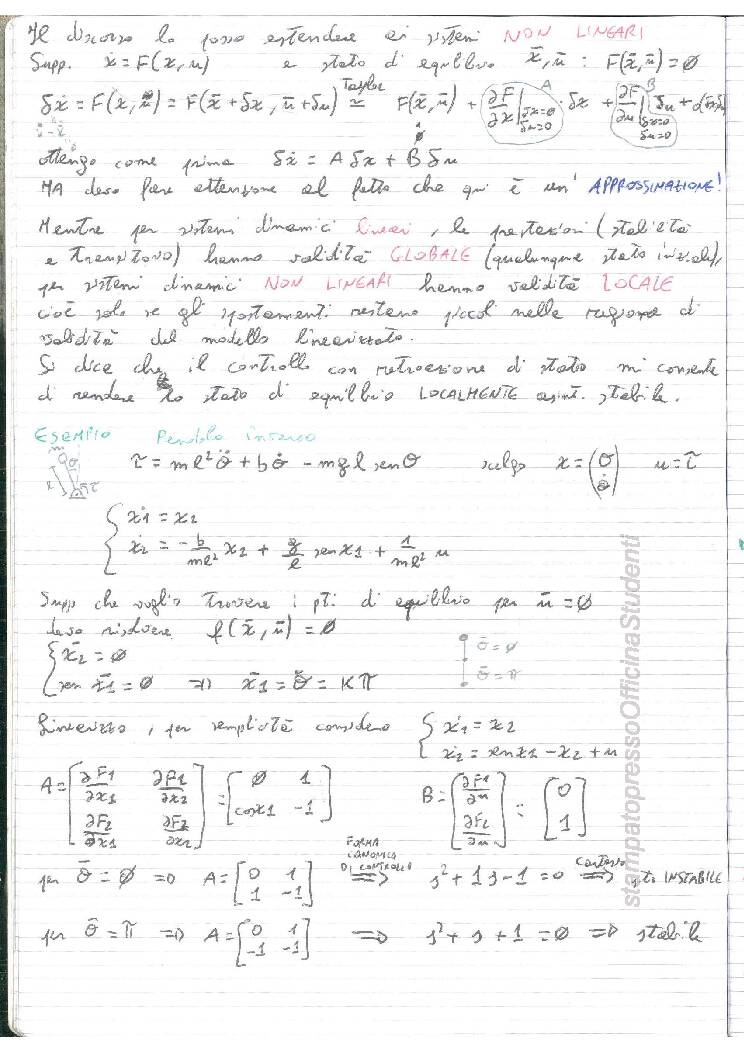 Il discorso lo posso estendere ai sistemi NON LINEARI
Supp. ẋ = F(x,u) e stato di equilibrio x̄, ū : F(x̄,ū) = ∅
δẋ = F(x,u) = F(x̄+δx, ū+δu) ≃ F(x̄,ū) + ∂F/∂x | δx=0 δu=0 · δx + ∂F/∂u | δx=0 δu=0 δu +
Taylor
A
B
∅
ottengo come prima δẋ = A δx + B δu
MA devo fare attenzione al fatto che qui è un' APPROSSIMAZIONE!
Mentre per sistemi dinamici lineari, le prestazioni (stabilità
e transitorio) hanno validità GLOBALE (qualunque stato iniziale),
per sistemi dinamici NON LINEARI hanno validità LOCALE
cioè solo se gli spostamenti restano piccoli nella regione di
validità del modello linearizzato.
Si dice che il controllo con retroazione di stato mi consente
di rendere lo stato di equilibrio LOCALMENTE asint. stabile.
ESEMPIO Pendolo inverso
m θ l τ
τ = ml²θ̈ + bθ̇ - mgl senθ scelgo x = (θ θ̇) u = τ
{ ẋ1 = x2
ẋ2 = -b/ml² x2 + g/l senx1 + 1/ml² u
Supp che voglio trovare i pti. di equilibrio per ū = ∅
devo risolvere f(x̄,ū) = ∅
{ x̄2 = ∅ θ̄ = ∅
sen x̄1 = ∅ => x̄1 = θ̄ = Kπ θ̄ = π
Linearizzo, per semplicità considero { ẋ1 = x2
ẋ2 = senx1 - x2 + u
A = [∂F1/∂x1 ∂F1/∂x2 ; ∂F2/∂x1 ∂F2/∂x2] = [∅ 1 ; cosx1 -1] B = [∂F1/∂u ; ∂F2/∂u] = [0 ; 1]
FORMA CANONICA DI CONTROLLO
per θ̄ = ∅ => A = [0 1 ; 1 -1] => s² + 1s - 1 = 0 => Cartesio INSTABILE
per θ̄ = π => A = [0 1 ; -1 -1] => s² + s + 1 = ∅ => stabile
stampatopressoOfficinaStudenti